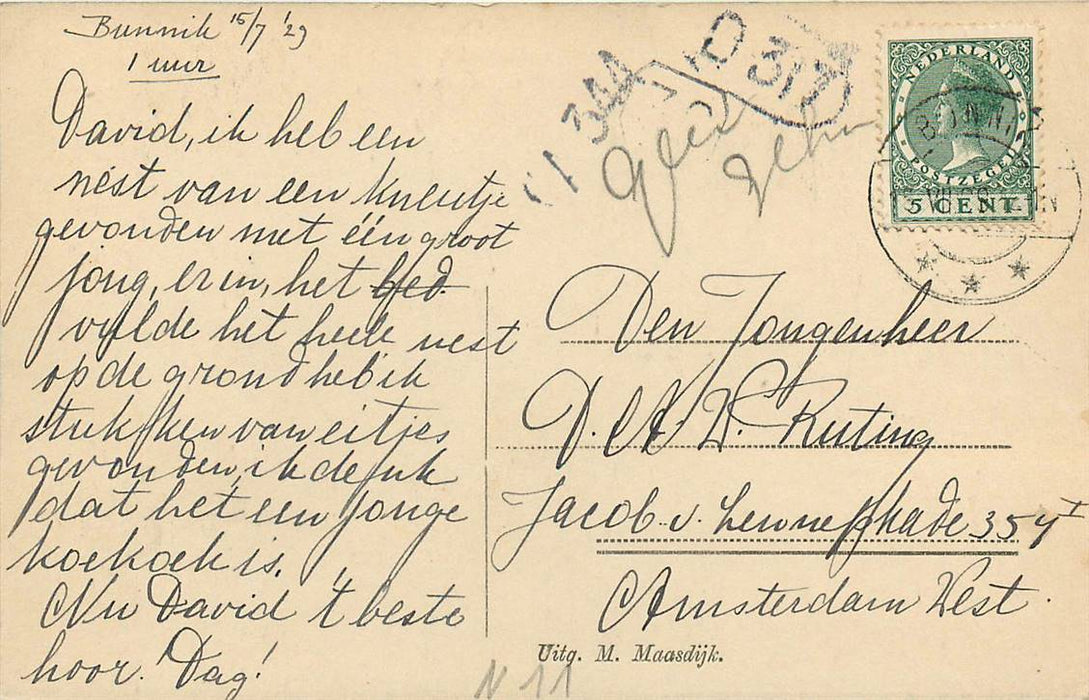 Bunnik 15/7 '29
1 uur
David, ik heb een
nest van een kneutje
gevonden met één groot
jong, erin, het
vulde het heele nest
op de grond heb ik
stukjken van eitjes
gevonden, ik denk
dat het een jonge
koekoek is.
Nu David 't beste
hoor! Dag!
344
D 317
NEDERLAND
POSTZEGEL
5 CENT
BUNNIK
Den Jongenheer
D. A. W. Ruting
Jacob v. Lennepkade 354 I
Amsterdam West.
Uitg. M. Maasdijk.
N 11